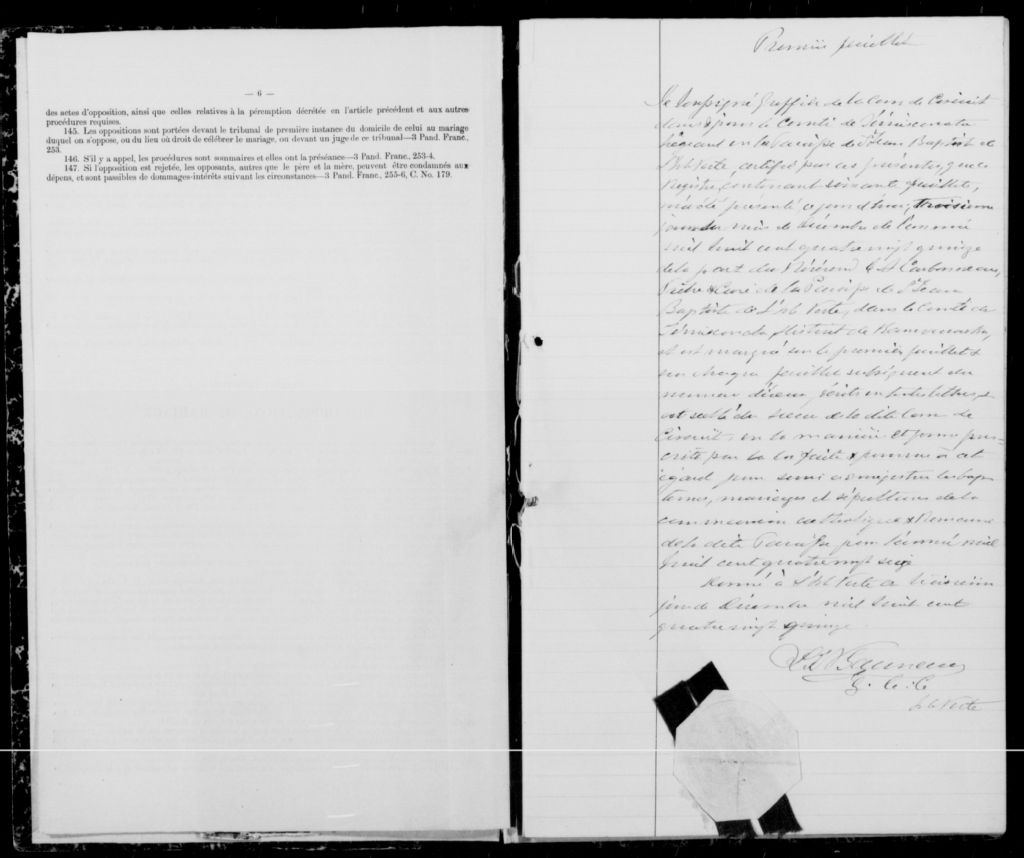 — 6 —
des actes d'opposition, ainsi que celles relatives à la péremption décrétée en l'article précédent et aux autres
procédures requises.
145. Les oppositions sont portées devant le tribunal de première instance du domicile de celui au mariage
duquel on s'oppose, ou du lieu où droit de célébrer le mariage, ou devant un juge de ce tribunal—3 Pand. Franc.,
253.
146. S'il y a appel, les procédures sont sommaires et elles ont la préséance—3 Pand. Franc., 253-4.
147. Si l'opposition est rejetée, les opposants, autres que le père et la mère, peuvent être condamnés aux
dépens, et sont passibles de dommages-intérêts suivant les circonstances—3 Pand. Franc., 255-6, C. No. 179.
Premier feuillet
Je Soussigné Greffier de la Cour de Circuit
dans & pour le Comté de Témiscouata
Siégeant en la Paroisse de St Jean Baptiste de
L'Isle Verte, certifie par ces présentes, que ce
Registre contenant soixante feuillets,
m'a été présenté ce jourd'hui, troisième
jour du mois de décembre de l'année
mil huit cent quatre vingt quinze
de la part du Révérend C. A. Carbonneau,
Prêtre & Curé de la Paroisse de St Jean
Baptiste de L'Isle Verte, dans le Comté de
Témiscouata, District de Kamouraska,
et est marqué sur le premier feuillet &
sur chaque feuillet subséquent du
numéro d'iceux, écrits en toutes lettres, &
est scellé du sceau de la dite Cour de
Circuit, en la manière et forme pres-
crite par la loi faite & pourvue à cet
égard pour servir à enregistrer les bap-
têmes, mariages et sépultures de la
communion catholique & Romaine
de la dite Paroisse pour l'année mil
huit cent quatre vingt seize
Donné à L'Isle Verte ce troisième
jour de Décembre mil huit cent
quatre vingt quinze.
G. C. C.
Isle Verte